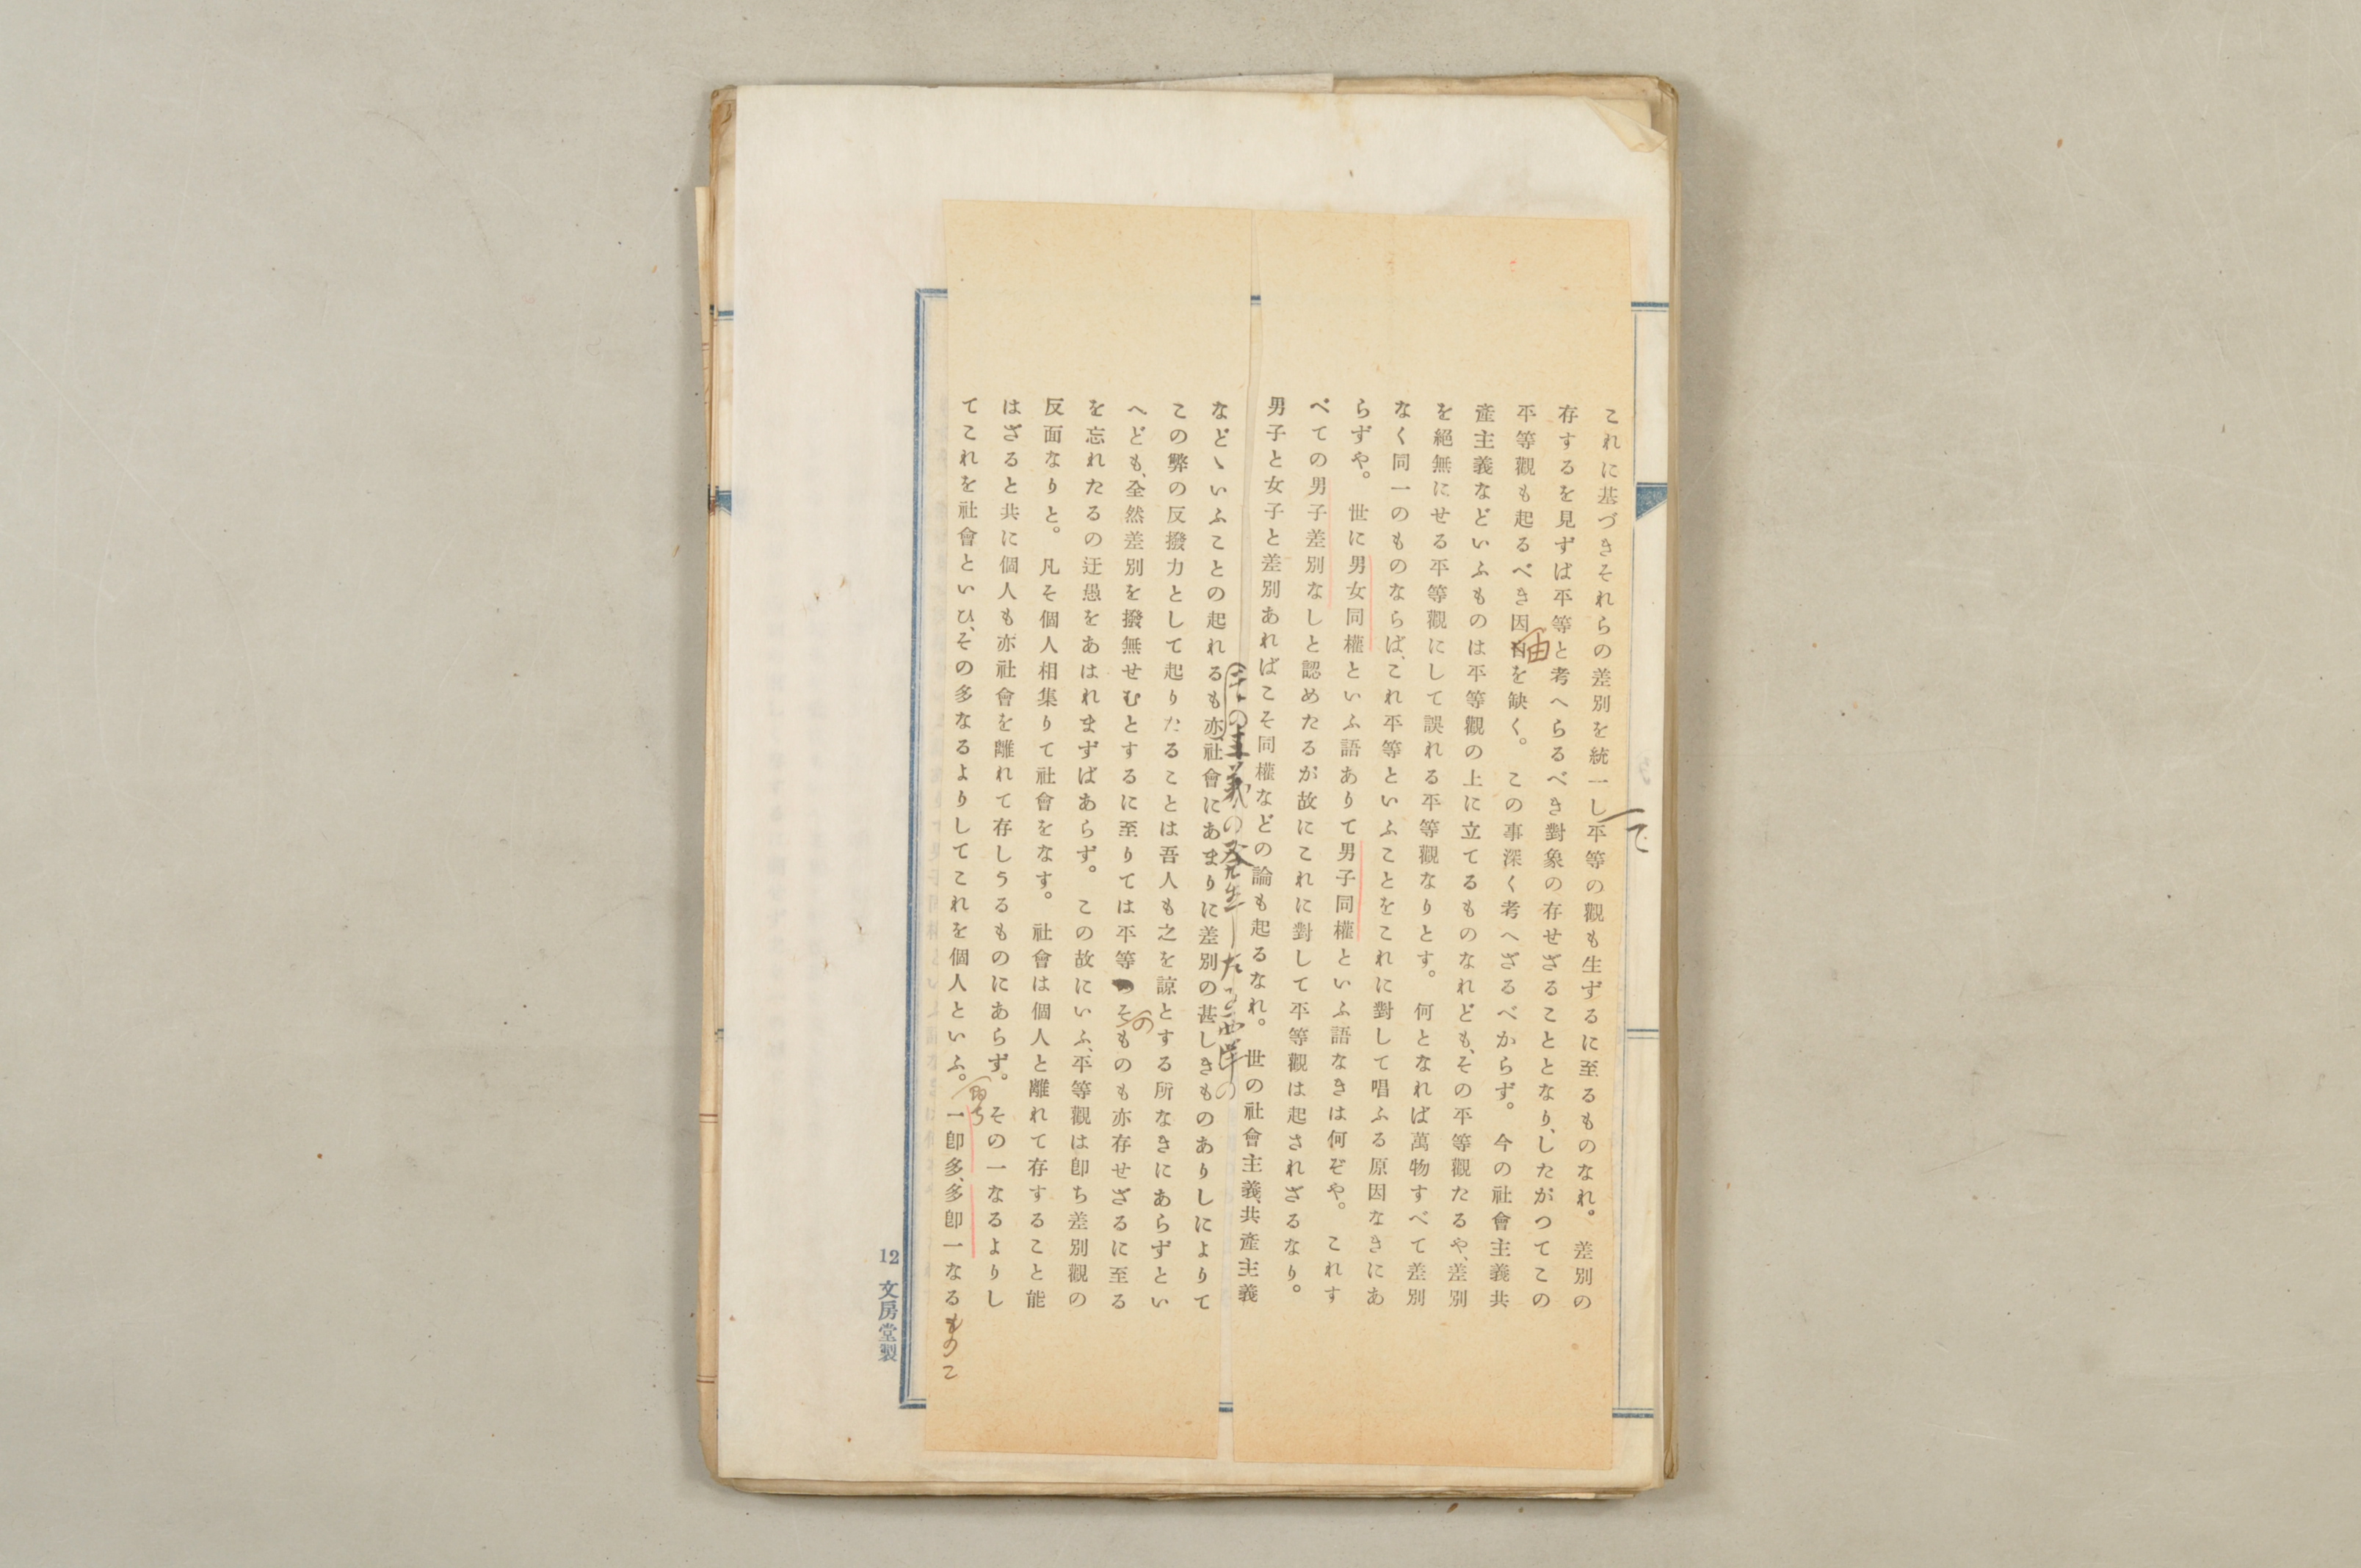 これに基づきそれらの差別を統一し平等の觀も生ずるに至るものなれ。　差別の
て
存するを見ずば平等と考へらるべき對象の存せざることとなり、したがつてこの
平等觀も起るべき因由を缺く。　この事深く考へざるべからず。　今の社會主義共
産主義などいふものは平等觀の上に立てるものなれども、その平等觀たるや、差別
を絕無にせる平等觀にして誤れる平等觀なりとす。　何となれば萬物すべて差別
なく同一のものならば、これ平等といふことをこれに對して唱ふる原因なきにあ
らずや。　世に男女同權といふ語ありて男子同權といふ語なきは何ぞや。　これす
べての男子差別なしと認めたるが故にこれに對して平等觀は起されざるなり。
男子と女子と差別あればこそ同權などの論も起るなれ。　世の社會主義、共產主義
などゝいふことの起れるも亦、社會にあまりに差別の甚しきものありしによりて
の主義の發生したる西洋の
この弊の反撥力として起りたることは吾人も之を諒とする所なきにあらずとい
へども、全然差別を撥無せむとするに至りては平等そのものも亦存せざるに至る
を忘れたるの迂愚をあはれまずばあらず。　この故にいふ、平等觀は卽ち差別觀の
反面なりと。　凡そ個人相集りて社會をなす。　社會は個人と離れて存すること能
はざると共に個人も亦社會を離れて存しうるものにあらず。　その一なるよりし
てこれを社會といひ、その多なるよりしてこれを個人といふ。　卽ち一卽多、多卽一なるものこ
12 文房堂製